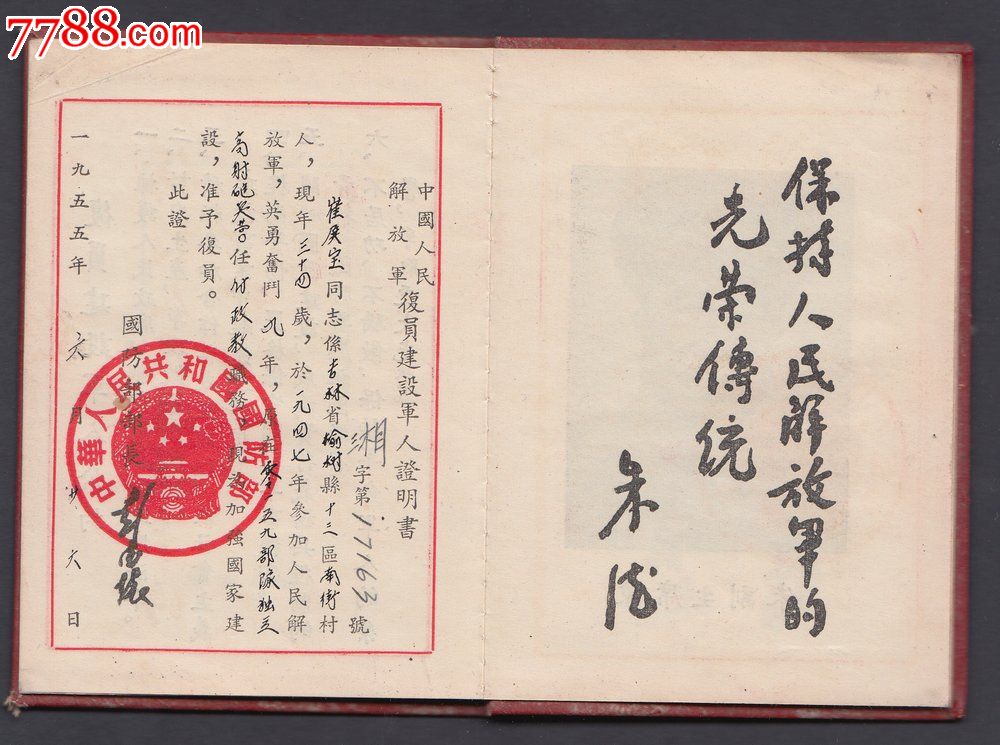 7788.com
保持人民解放軍的
光榮傳統
朱德
中國人民
解放軍
復員建設軍人證明書
湘字第17163號
同志係吉林省榆樹縣十二區南街村
人，現年三十四歲，於一九四七年參加人民解
放軍，英勇奮鬥九年，原在零一五九部隊獨立
高射砲兵營任付政教職務。現為加強國家建
設，准予復員。
此證
國防部部長 彭德懷
中華人民共和國國防部
一九五五年 六月 廿六日